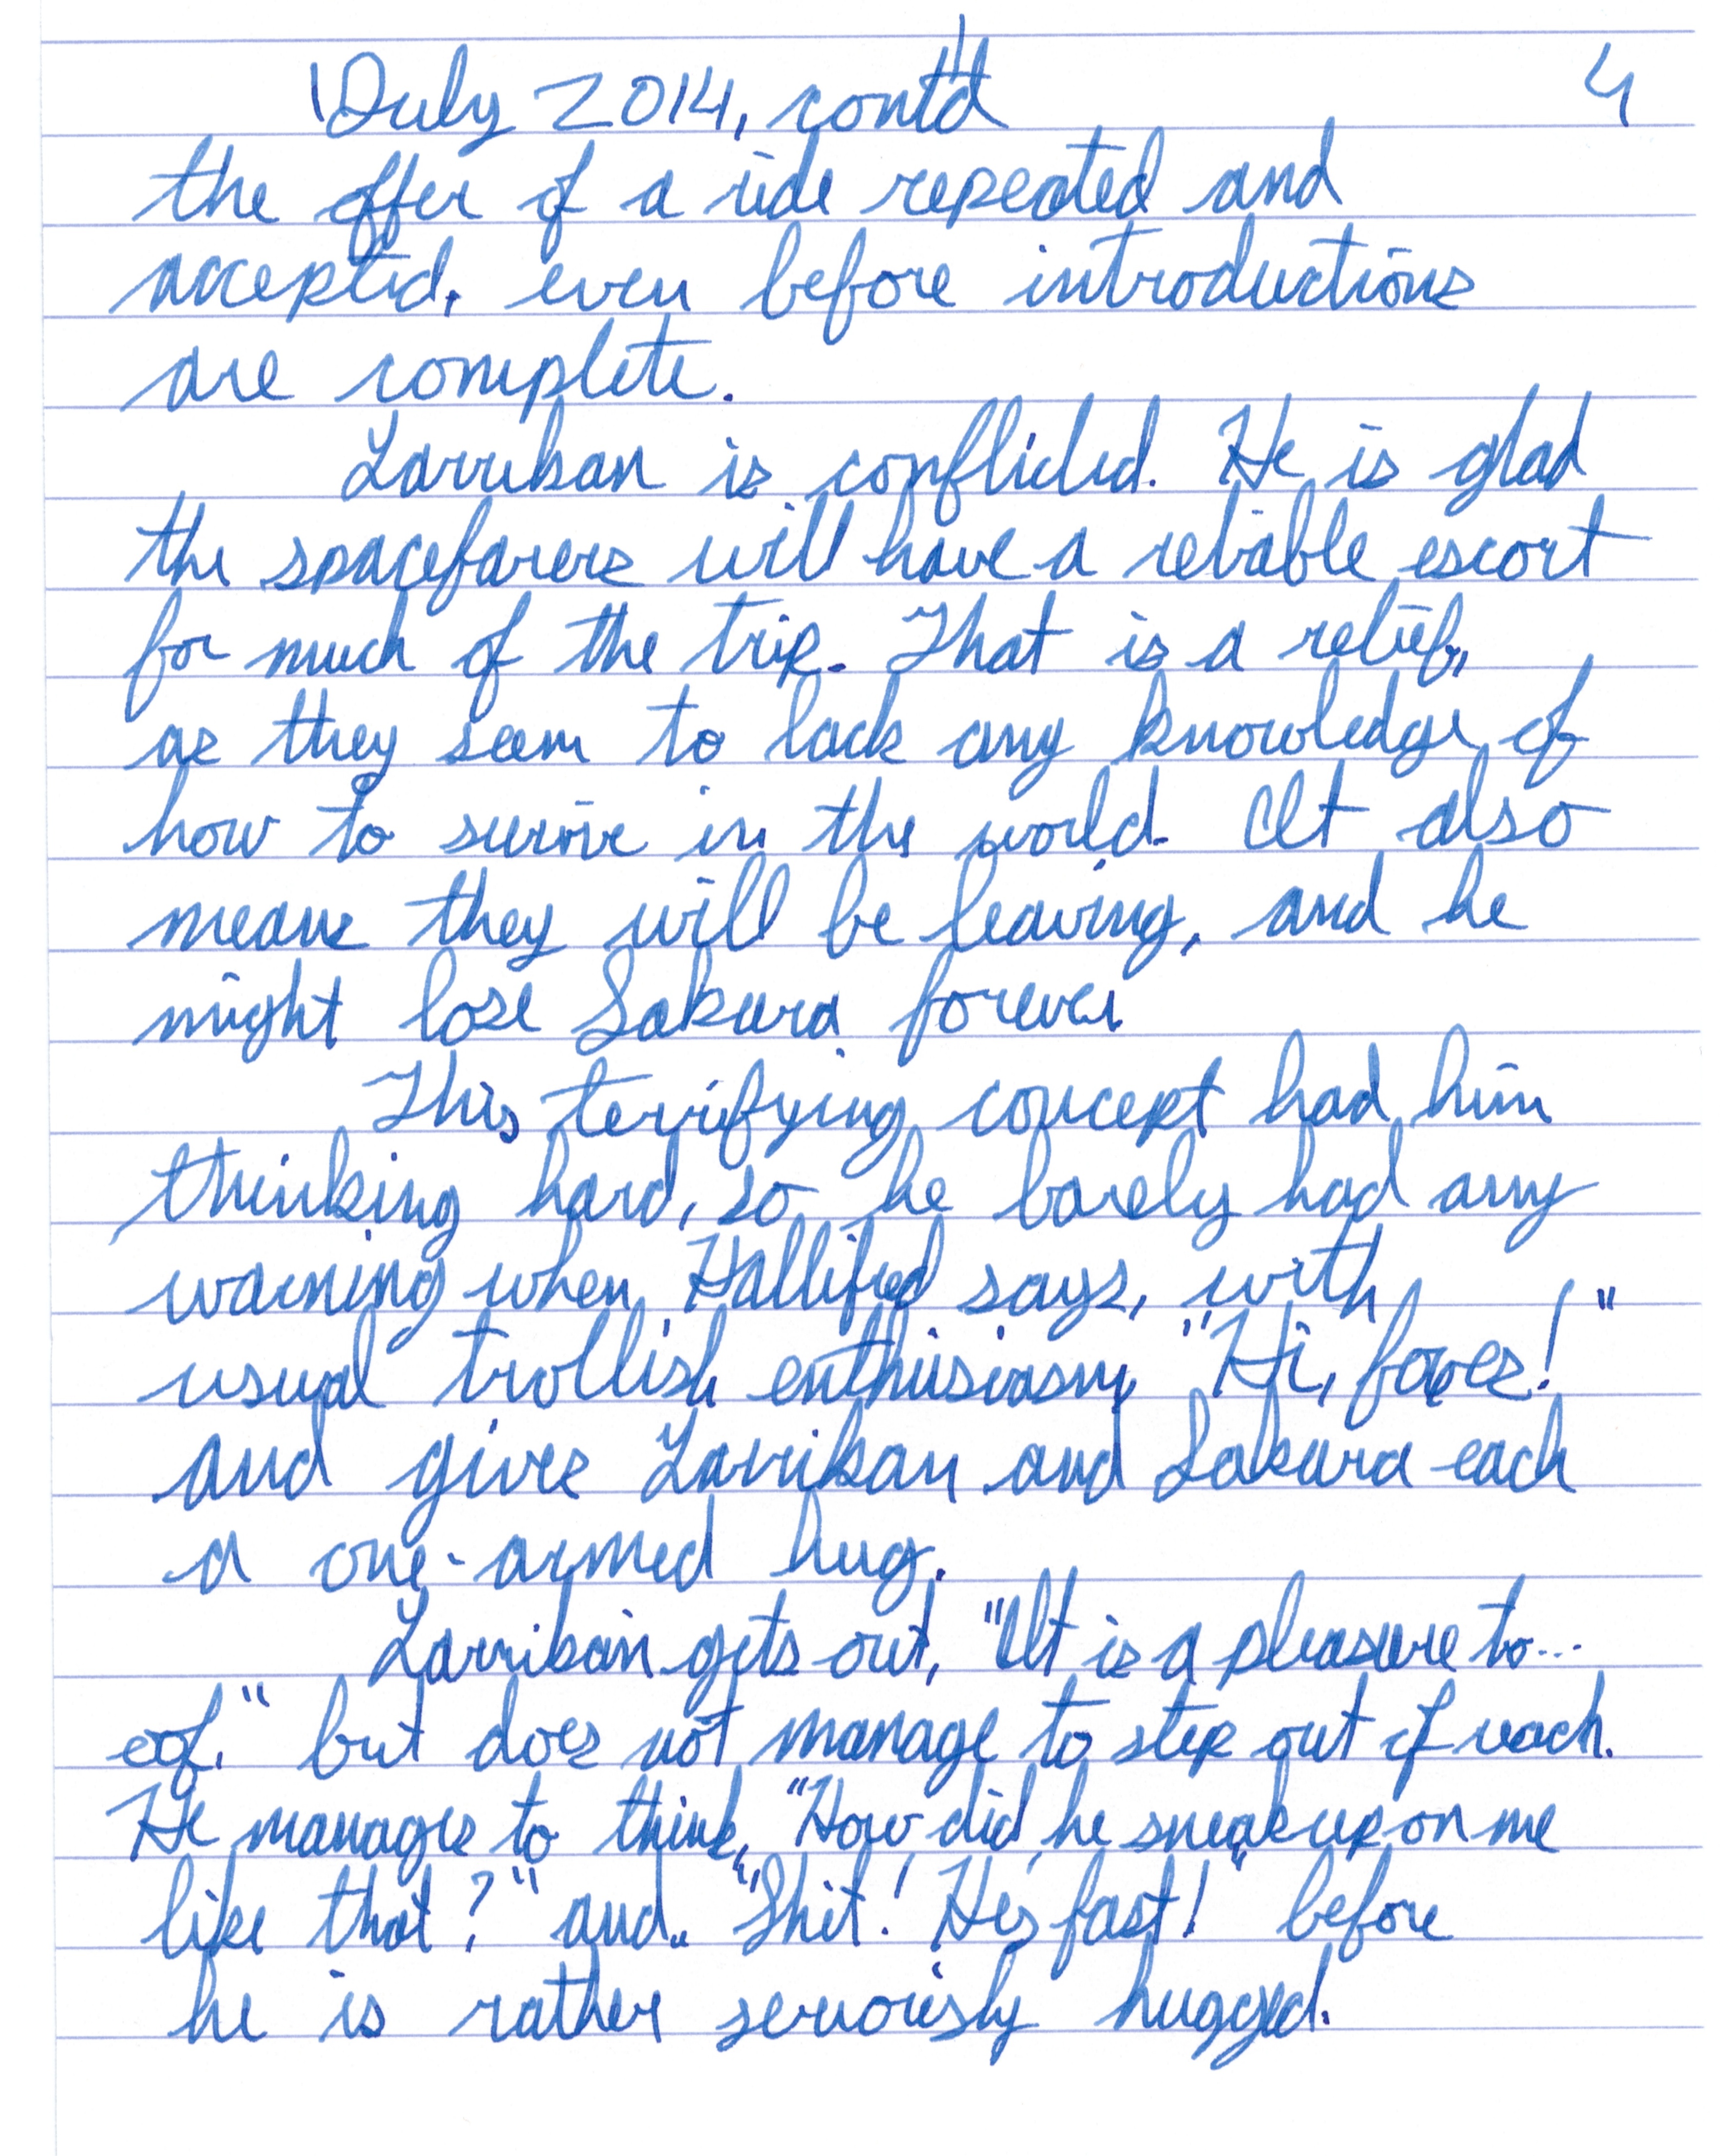 July 2014, cont'd 4
the offer of a ride repeated and
accepted, even before introductions
are complete.
Larriban is conflicted. He is glad
the spacefarers will have a reliable escort
for much of the trip. That is a relief,
as they seem to lack any knowledge of
how to survive in the world. It also
means they will be leaving, and he
might lose Sakura forever.
This terrifying concept had him
thinking hard, so he barely had any
warning when Hallifred says, with
usual trollish enthusiasm, "Hi,
and gives Larriban and Sakura each
a one-armed hug.
Larriban gets out, "It is a pleasure to...
oof." but does not manage to step out of reach.
He manages to think, "How did he sneak up on me
like that?" and "Shit! He's fast!" before
he is rather seriously hugged.